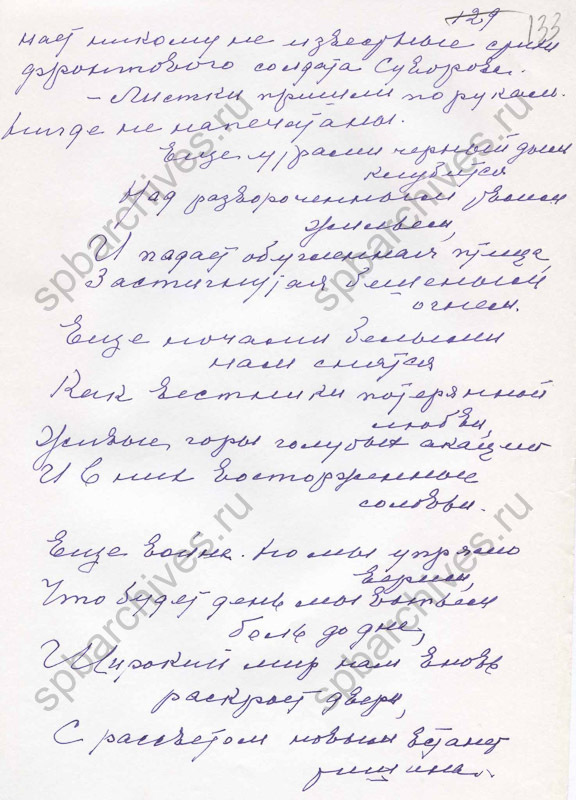 129
133
нает никому не известные стихи
фронтового солдата Суворова.
– Листки пришли по рукам.
Нигде не напечатаны.
Еще утрами черный дым
клубится
Над развороченным твоим
жильем,
И падает обугленная птица,
Застигнутая бешеным
огнем.
Еще ночами белыми
нам снятся
Как вестники потерянной
любви,
Живые горы голубых акаций
И в них восторженные
соловьи.
Еще война. Но мы упрямо
верим,
Что будет день мы выпьем
боль до дна,
Широкий мир нам вновь
раскроет двери,
С рассветом новым встанет
тишина.
spbarchives.ru
spbarchives.ru
spbarchives.ru
spbarchives.ru
spbarchives.ru
spbarchives.ru